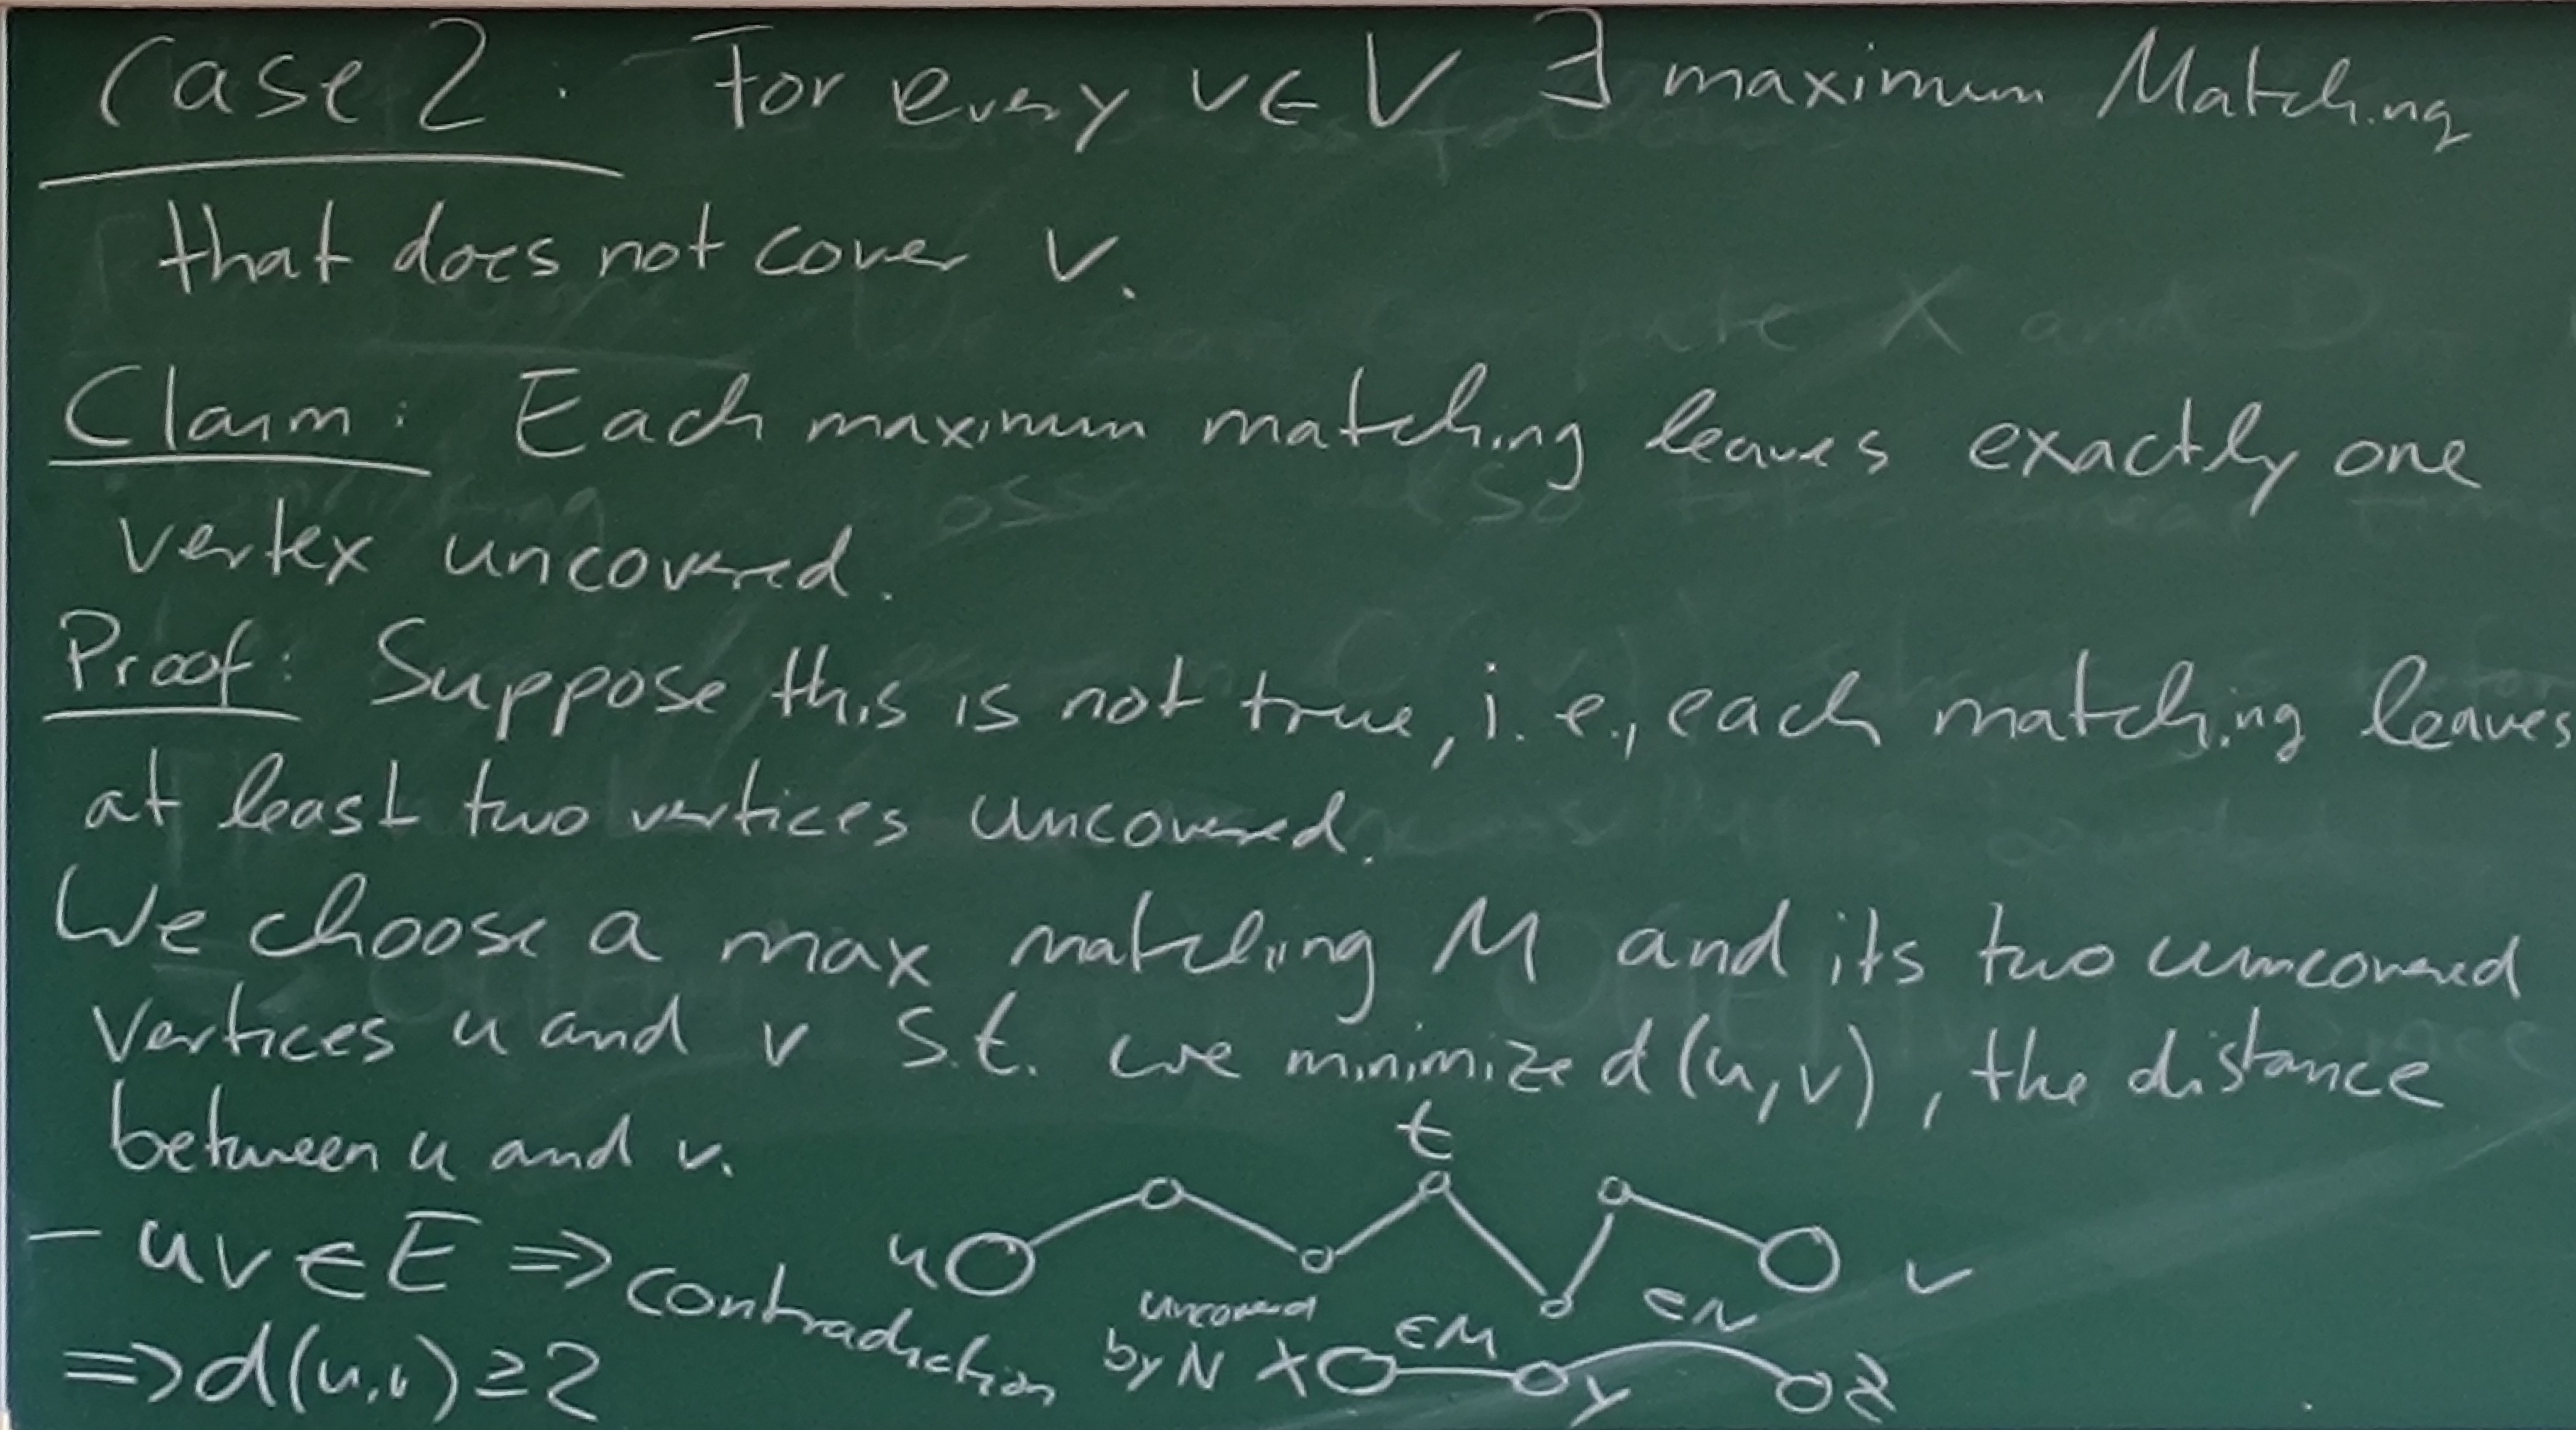 Case 2: For every v ∈ V ∃ maximum Matching
that does not cover v.
Claim: Each maximum matching leaves exactly one
vertex uncovered.
Proof: Suppose this is not true, i.e., each matching leaves
at least two vertices uncovered.
We choose a max matching M and its two uncovered
vertices u and v s.t. we minimize d(u,v), the distance
between u and v.
t
- uv ∈ E ⇒ contradiction
u
v
⇒ d(u,v) ≥ 2
uncovered
by N x ∈M y ∈N z